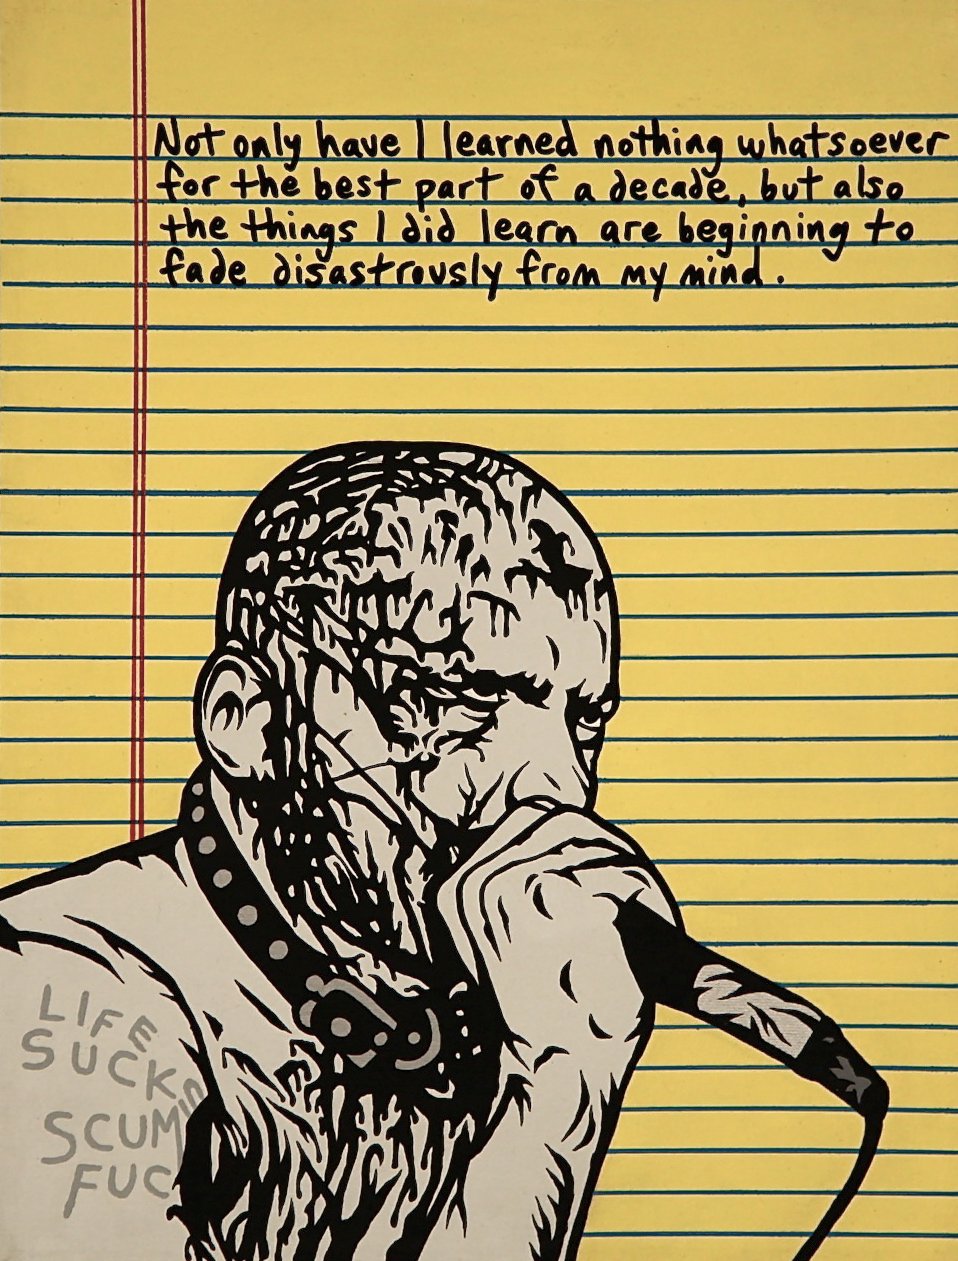 Not only have I learned nothing whatsoever
for the best part of a decade, but also
the things I did learn are beginning to
fade disastrously from my mind.
LIFE
SUCK
SCUM
FUC